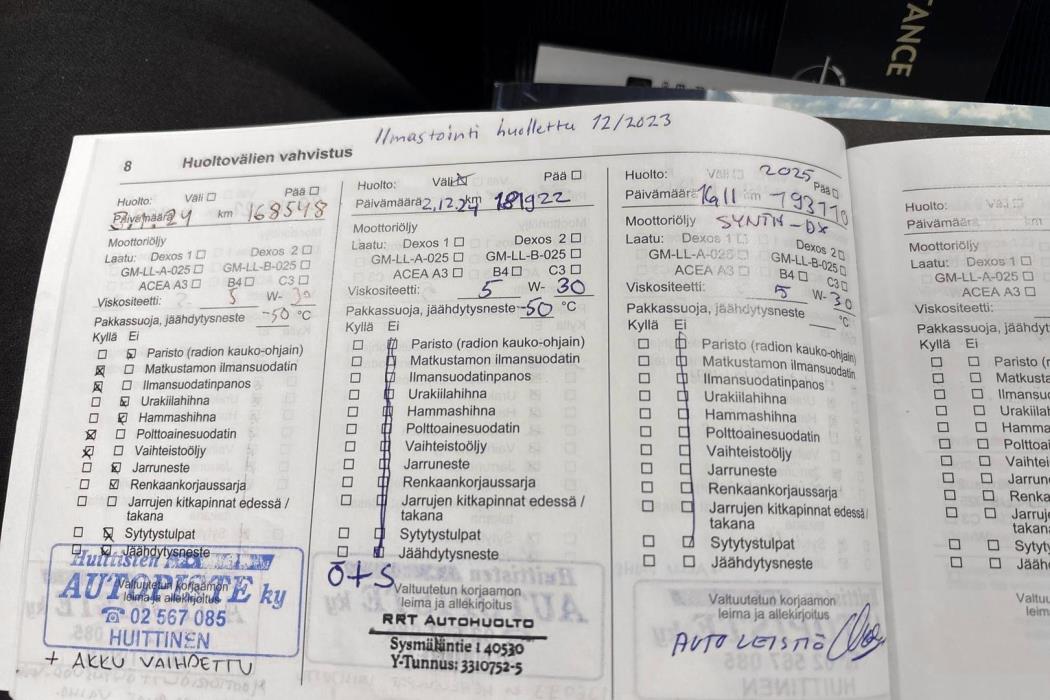 TANCE
Ilmastointi huollettu 12/2023
8 Huoltovälien vahvistus
Huolto: Väli Pää
Päivämäärä 24 km 168548
Moottoriöljy
Laatu: Dexos 1 Dexos 2
GM-LL-A-025 GM-LL-B-025
ACEA A3 B4 C3
Viskositeetti: 5 W- 30
Pakkassuoja, jäähdytysneste -50 °C
Kyllä Ei
Paristo (radion kauko-ohjain)
Matkustamon ilmansuodatin
Ilmansuodatinpanos
Urakiilahihna
Hammashihna
Polttoainesuodatin
Vaihteistoöljy
Jarruneste
Renkaankorjaussarja
Jarrujen kitkapinnat edessä /
takana
Sytytystulpat
Jäähdytysneste
Huittisten
AUTOPISTE ky
Valtuutetun korjaamon
leima ja allekirjoitus
☎ 02 567 085
HUITTINEN
+ AKKU VAIHDETTU
Huolto: Väli Pää
Päivämäärä 2,12.24 km 181922
Moottoriöljy
Laatu: Dexos 1 Dexos 2
GM-LL-A-025 GM-LL-B-025
ACEA A3 B4 C3
Viskositeetti: 5 W- 30
Pakkassuoja, jäähdytysneste -50 °C
Kyllä Ei
Paristo (radion kauko-ohjain)
Matkustamon ilmansuodatin
Ilmansuodatinpanos
Urakiilahihna
Hammashihna
Polttoainesuodatin
Vaihteistoöljy
Jarruneste
Renkaankorjaussarja
Jarrujen kitkapinnat edessä /
takana
Sytytystulpat
Jäähdytysneste
Ö+S
Valtuutetun korjaamon
leima ja allekirjoitus
RRT AUTOHUOLTO
Sysmäläntie 1 40530
Y-Tunnus: 3310752-5
2025
Huolto: Väli Pää
Päivämäärä km
Moottoriöljy SYNTH-DX
Laatu: Dexos 1 Dexos 2
GM-LL-A-025 GM-LL-B-025
ACEA A3 B4 C3
Viskositeetti: 5 W- 30
Pakkassuoja, jäähdytysneste °C
Kyllä Ei
Paristo (radion kauko-ohjain)
Matkustamon ilmansuodatin
Ilmansuodatinpanos
Urakiilahihna
Hammashihna
Polttoainesuodatin
Vaihteistoöljy
Jarruneste
Renkaankorjaussarja
Jarrujen kitkapinnat edessä /
takana
Sytytystulpat
Jäähdytysneste
Valtuutetun korjaamon
leima ja allekirjoitus
AUTO LEISTIÖ
Huolto: Väli
Päivämäärä km
Moottoriöljy
Laatu: Dexos 1
GM-LL-A-025
ACEA A3
Viskositeetti:
Pakkassuoja, jäähdyt
Kyllä Ei
Paristo (r
Matkusta
Ilmansuo
Urakiilah
Hamma
Polttoai
Vaihtei
Jarrun
Renka
Jarruj
takan
Sytyt
Jääh
Valtu
leim